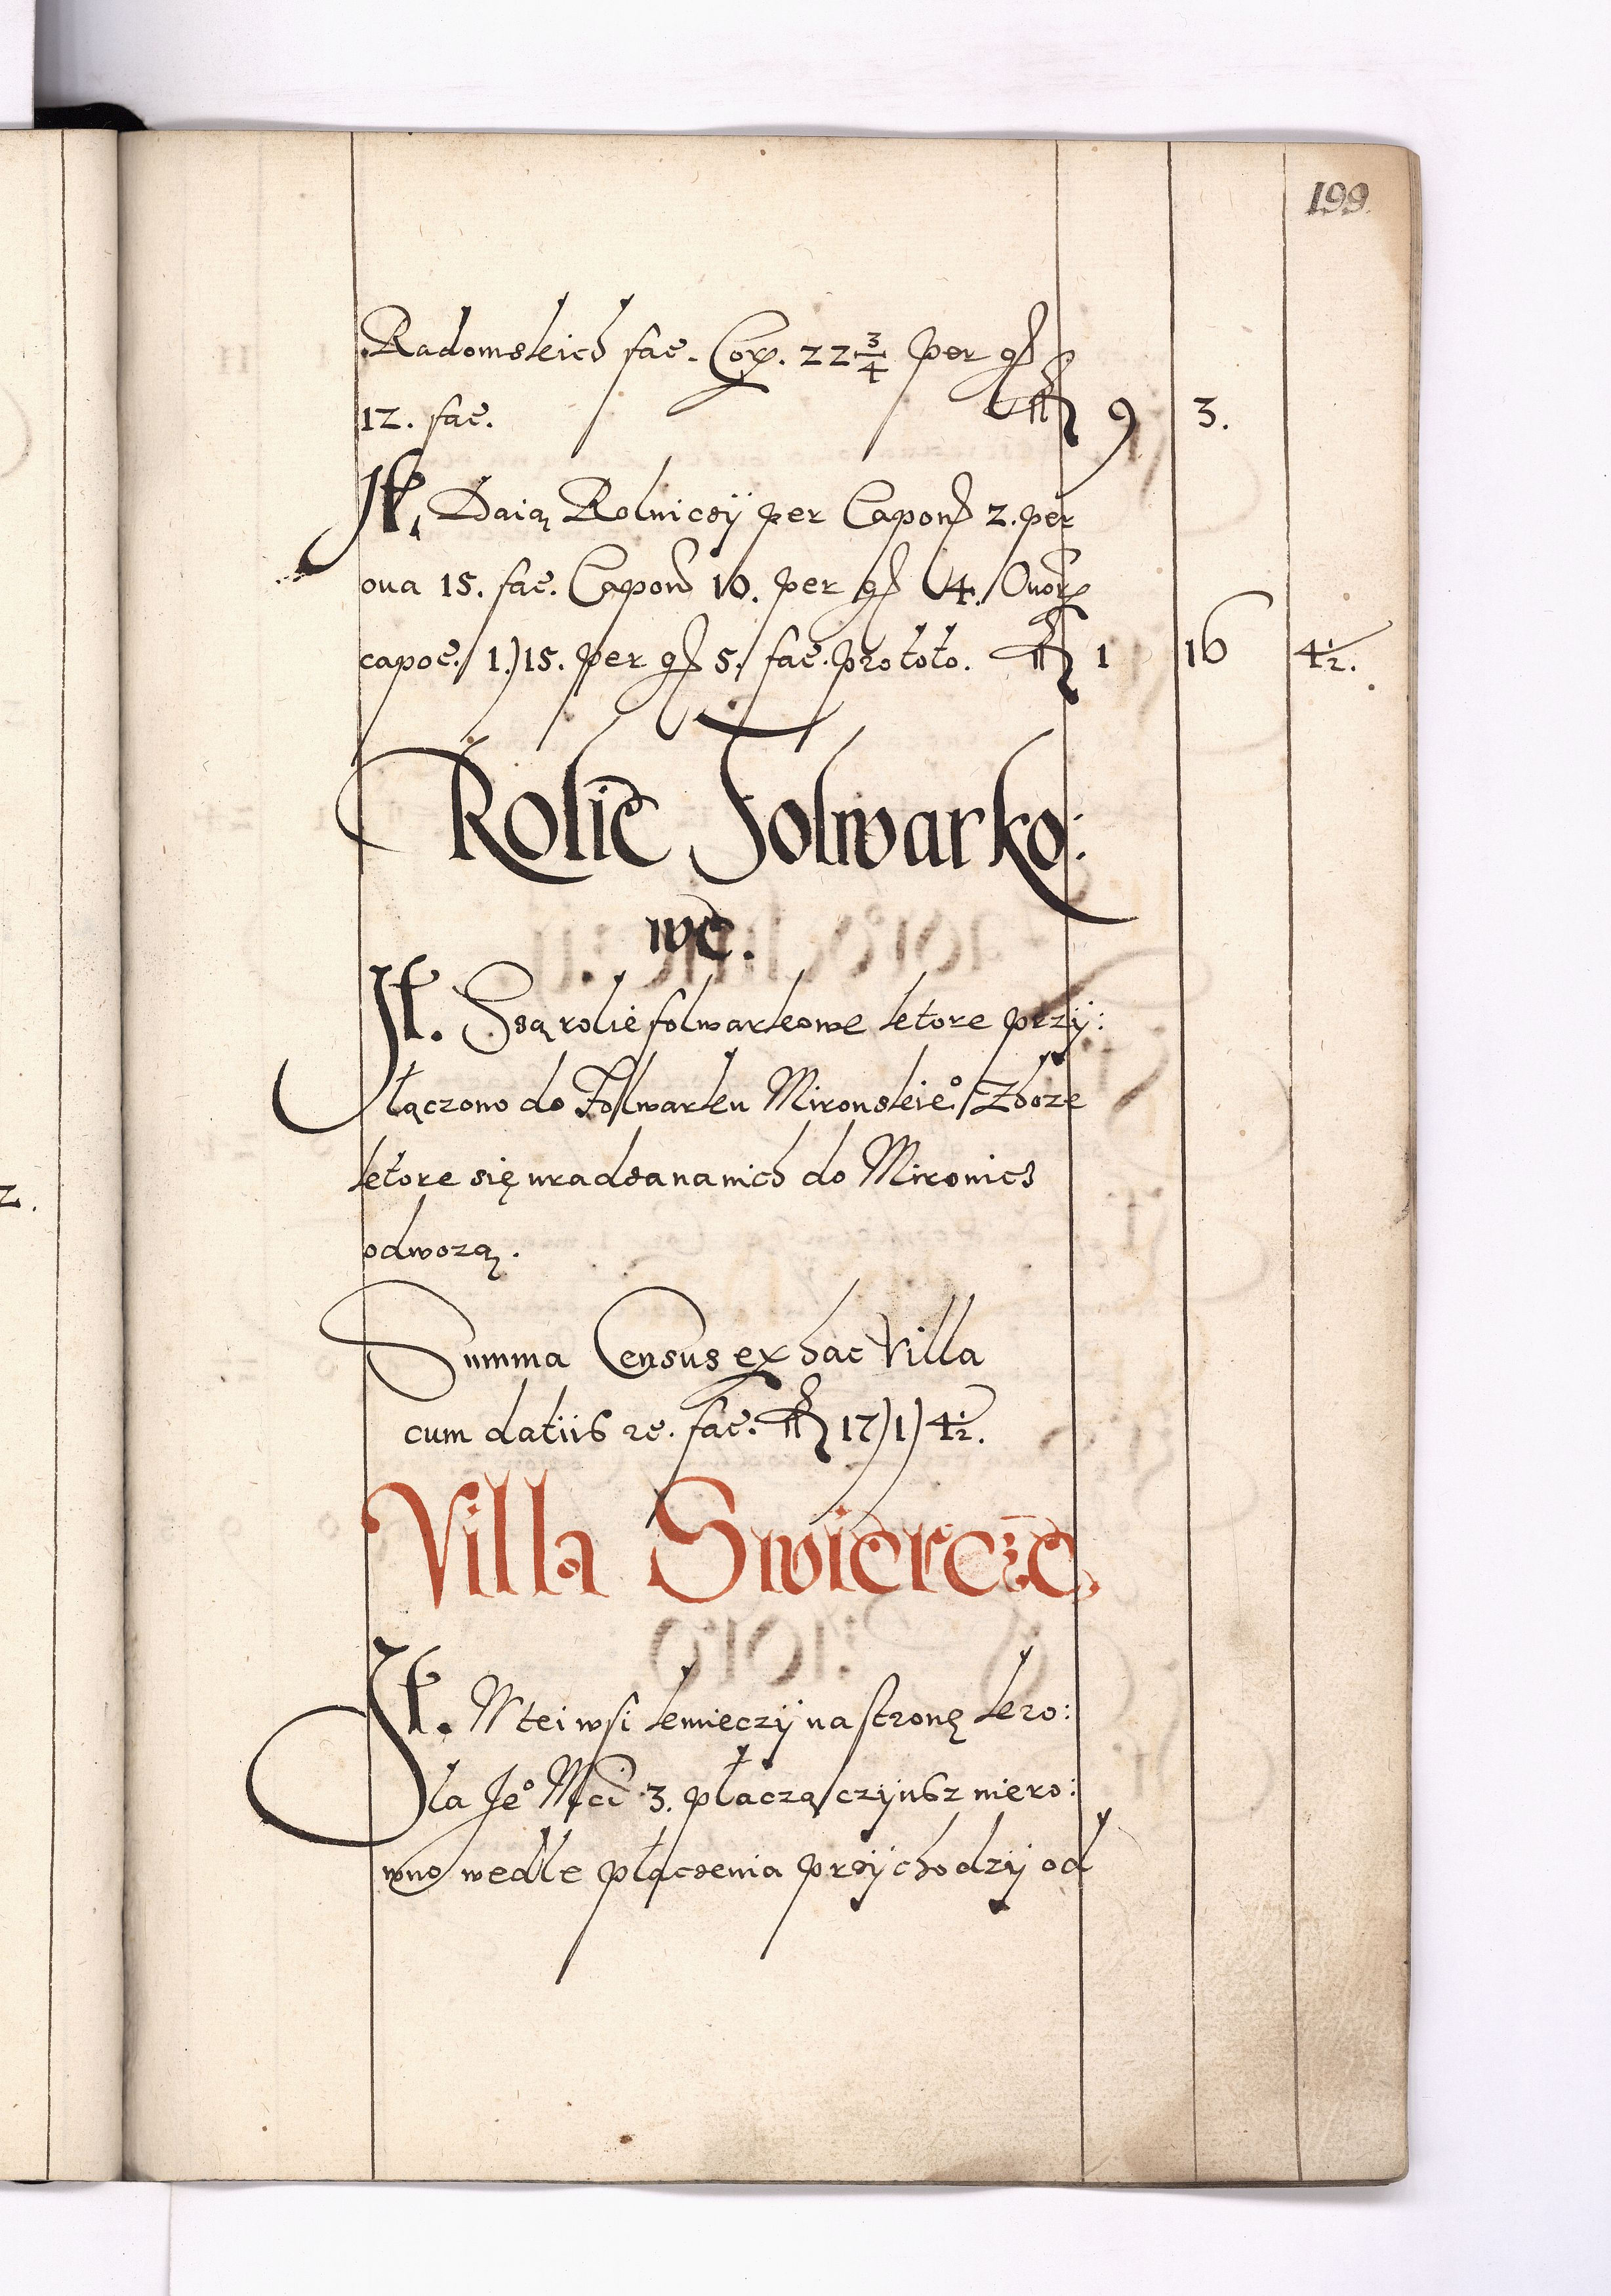 199
Radomskich fac. Cor. 22 3/4 per gr
12. fac. fl 9 3.
It. Daią Rolniczÿ per Capon 2. per
oua 15. fac. Capon 10. per gr 4. Ouor
capoe. 1.) 15. per gr 5. fac. pro toto. fl 1 16 4 1/2.
Rolie Folwarko:
we.
It. Są rolie folwarkowe ktore przÿ:
łączono do Folwarku Mironskieo. Zboze
ktore się uradza na nich do Mironicz
odwozą.
Summa Census ex hac Villa
cum datiis re. fac. fl 17) 1) 4 1/2.
Villa Swiercze,
It. W tei wsi kmieczÿ na stronę kro:
la Jeo Mci 3. płaczą czÿnsz niero:
wno wedle płaczenia przÿchodzÿ od
2.